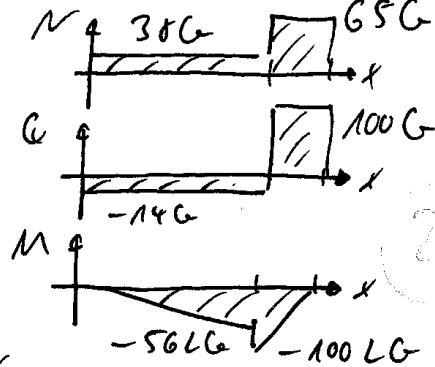 N 38G 65G
x
Q 100G
x
-14G
M
x
-56LG -100LG